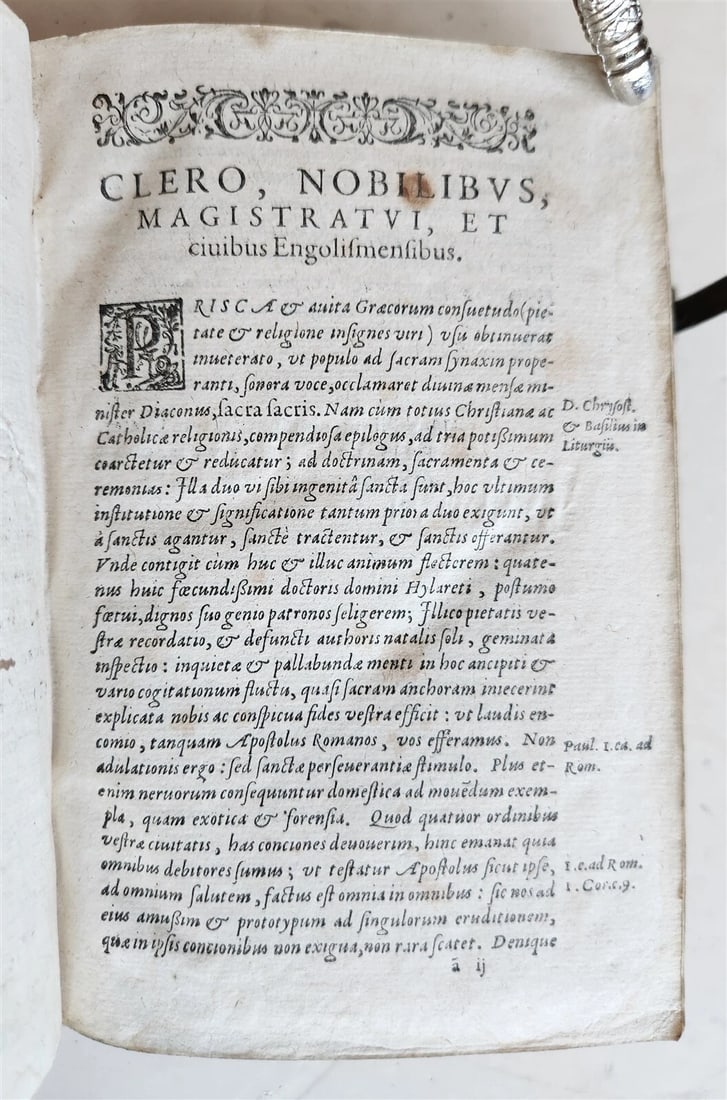 CLERO, NOBILIBVS,
MAGISTRATVI, ET
ciuibus Engoliſmenſibus.
PRISCÆ & auita Græcorum conſuetudo (pie-
tate & religione inſignes viri) vſu obtinuerat
inueterato, vt populo ad ſacram ſynaxin prope-
ranti, ſonora voce, occlamaret diuinæ menſæ mi-
niſter Diaconus, ſacra ſacris. Nam cùm totius Chriſtianæ ac
D. Chryſoſt.
& Baſilius in
Liturgiis.
Catholicæ religionis, compendioſa epilogus, ad tria potißimum
coarctetur & reducatur; ad doctrinam, ſacramenta & ce-
remonias: Illa duo vi ſibi ingenitâ ſancta ſunt, hoc vltimum
inſtitutione & ſignificatione tantum priora duo exigunt, vt
à ſanctis agantur, ſanctè tractentur, & ſanctis offerantur.
Vnde contigit cùm huc & illuc animum flecterem: quate-
nus huic fœcundißimi doctoris domini Hylareti, poſtumo
fœtui, dignos ſuo genio patronos ſeligerem; Illico pietatis ve-
ſtræ recordatio, & defuncti authoris natalis ſoli, geminata
inſpectio: inquietæ & pallabundæ menti in hoc ancipiti &
vario cogitationum fluctu, quaſi ſacram anchoram iniecerint
explicata nobis ac conſpicua fides veſtra efficit: vt laudis en-
comio, tanquam Apoſtolus Romanos, vos efferamus. Non
Paul. 1. ca. ad
Rom.
adulationis ergo: ſed ſanctæ perſeuerantiæ ſtimulo. Plus et-
enim neruorum conſequuntur domeſtica ad mouẽdum exem-
pla, quam exotica & forenſia. Quod quatuor ordinibus
veſtræ ciuitatis, has conciones deuouerim, hinc emanat quia
omnibus debitores ſumus; vt teſtatur Apoſtolus ſicut ipſe,
1. c. ad Rom.
1. Cor. c. 9.
ad omnium ſalutem, factus eſt omnia in omnibus: ſic nos ad
eius amußim & prototypum ad ſingulorum eruditionem,
quæ in ipſis concionibus non exigua, non rara ſcatet. Denique
ã ij